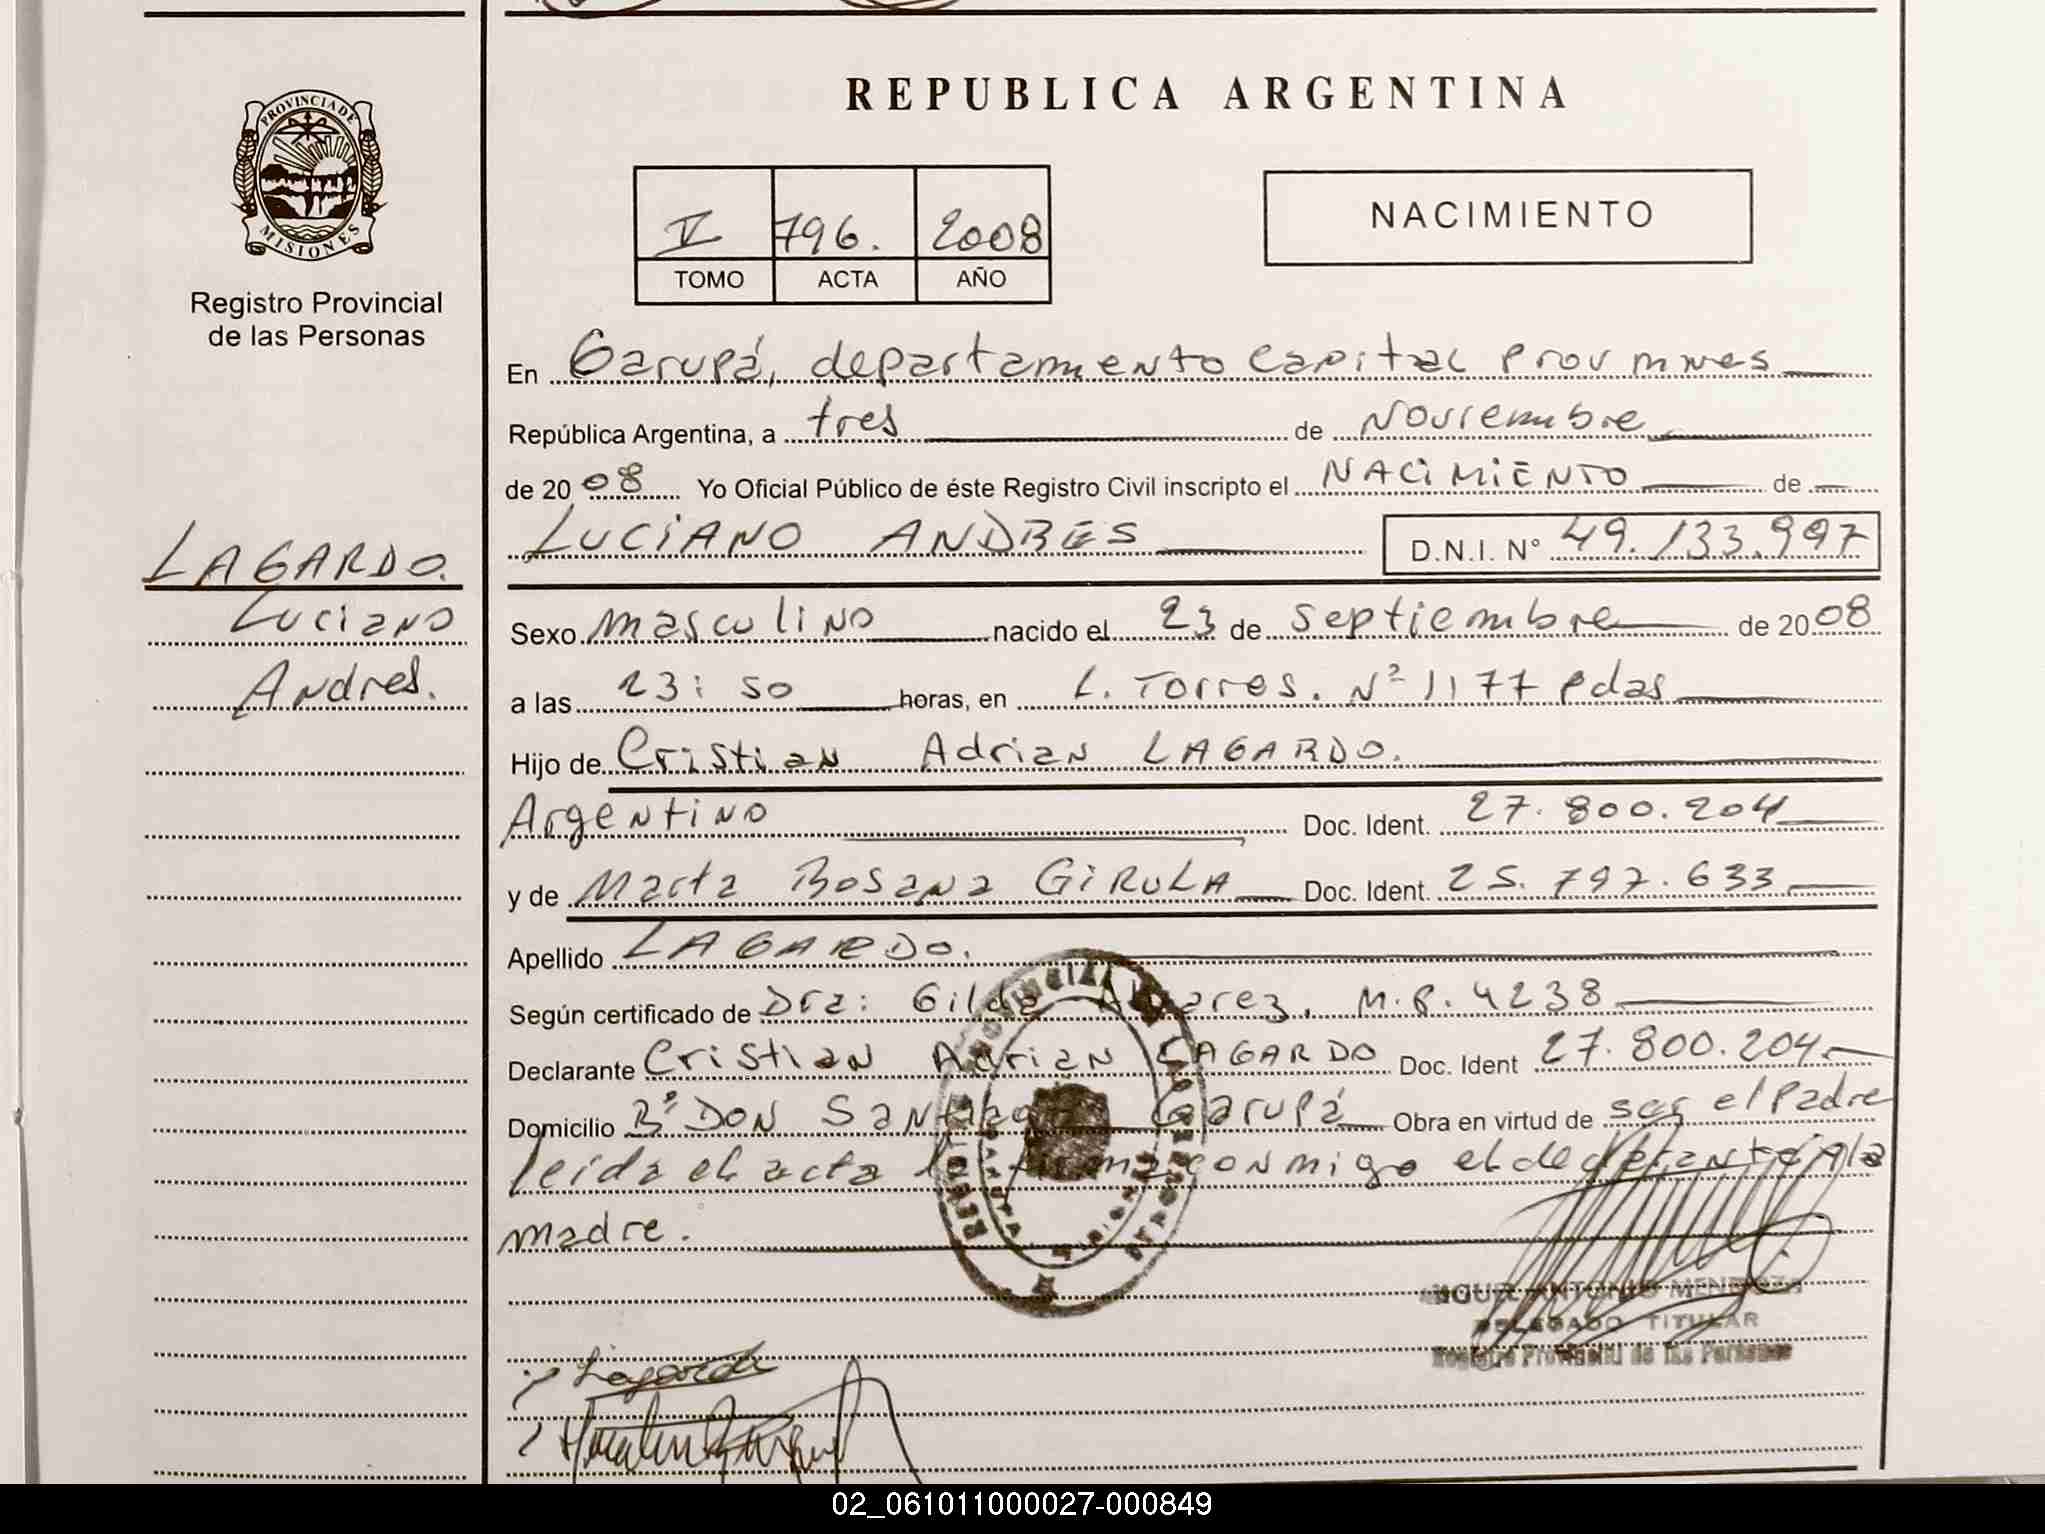 PROVINCIA DE
MISIONES
Registro Provincial
de las Personas
REPUBLICA ARGENTINA
V 796. 2008
TOMO ACTA AÑO
NACIMIENTO
En Garupá, departamento Capital Prov mnes
República Argentina, a tres de Noviembre
de 20 08 Yo Oficial Público de éste Registro Civil inscripto el NACIMIENTO de
LUCIANO ANDRES D.N.I. N° 49.133.997
LAGARDO.
Luciano
Andres.
Sexo masculino nacido el 23 de septiembre de 20 08
a las 23:50 horas, en L. Torres. Nº 1177 pdas
Hijo de Cristian Adrian LAGARDO.
Argentino Doc. Ident. 27.800.204
y de Marta Rosana GIRULA Doc. Ident. 25.797.633
Apellido LAGARDO.
Según certificado de Dra: Gilda Alvarez. M.P. 4238
Declarante Cristian Adrian LAGARDO Doc. Ident 27.800.204
Domicilio Bº DON Santiago Garupá Obra en virtud de ser el padre
leida el acta la firma conmigo el declarante y la
madre.
MIGUEL ANTONIO MENDOZA
DELEGADO TITULAR
Registro Provincial de las Personas
Lagardo
02_061011000027-000849